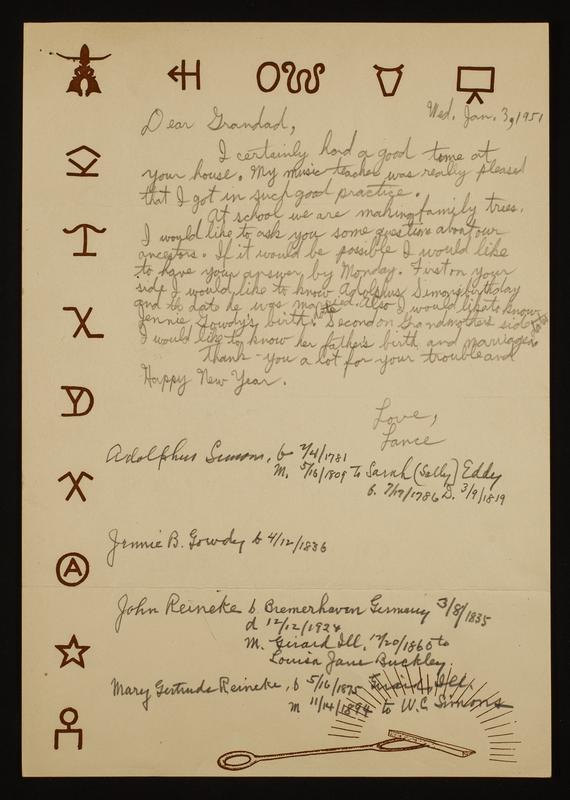 Wed. Jan. 3, 1951
Dear Grandad,
I certainly had a good time at
your house. My music teacher was really pleased
that I got in such good practice.
At school we are making family trees.
I would like to ask you some questions about our
ancestors. If it would be possible I would like
to have your answer by Monday. First on your
side I would like to know Adolphus Simons birthday
and the date he was married. Also I would like to know
Jennie Gowdy's birth date. Second on Grandmother's side
I would like to know her father's birth and marriage
Thank-you a lot for your trouble and
Happy New Year.
Love,
Lance
Adolphus Simons, b 2/4/1781
M. 5/16/1809 To Sarah (Sally) Eddy
b. 7/17/1786 D. 3/9/1819
Jennie B. Gowdy b 4/12/1836
John Reineke b. Bremerhaven Germany 3/8/1835
d 12/12/1924
M. Girard Ill, 12/20/1860 to
Louisa Jane Buckley
Mary Gertrude Reineke, b 5/16/1875 Girard, Ill.
m 11/14/1894 to W.C. Simons